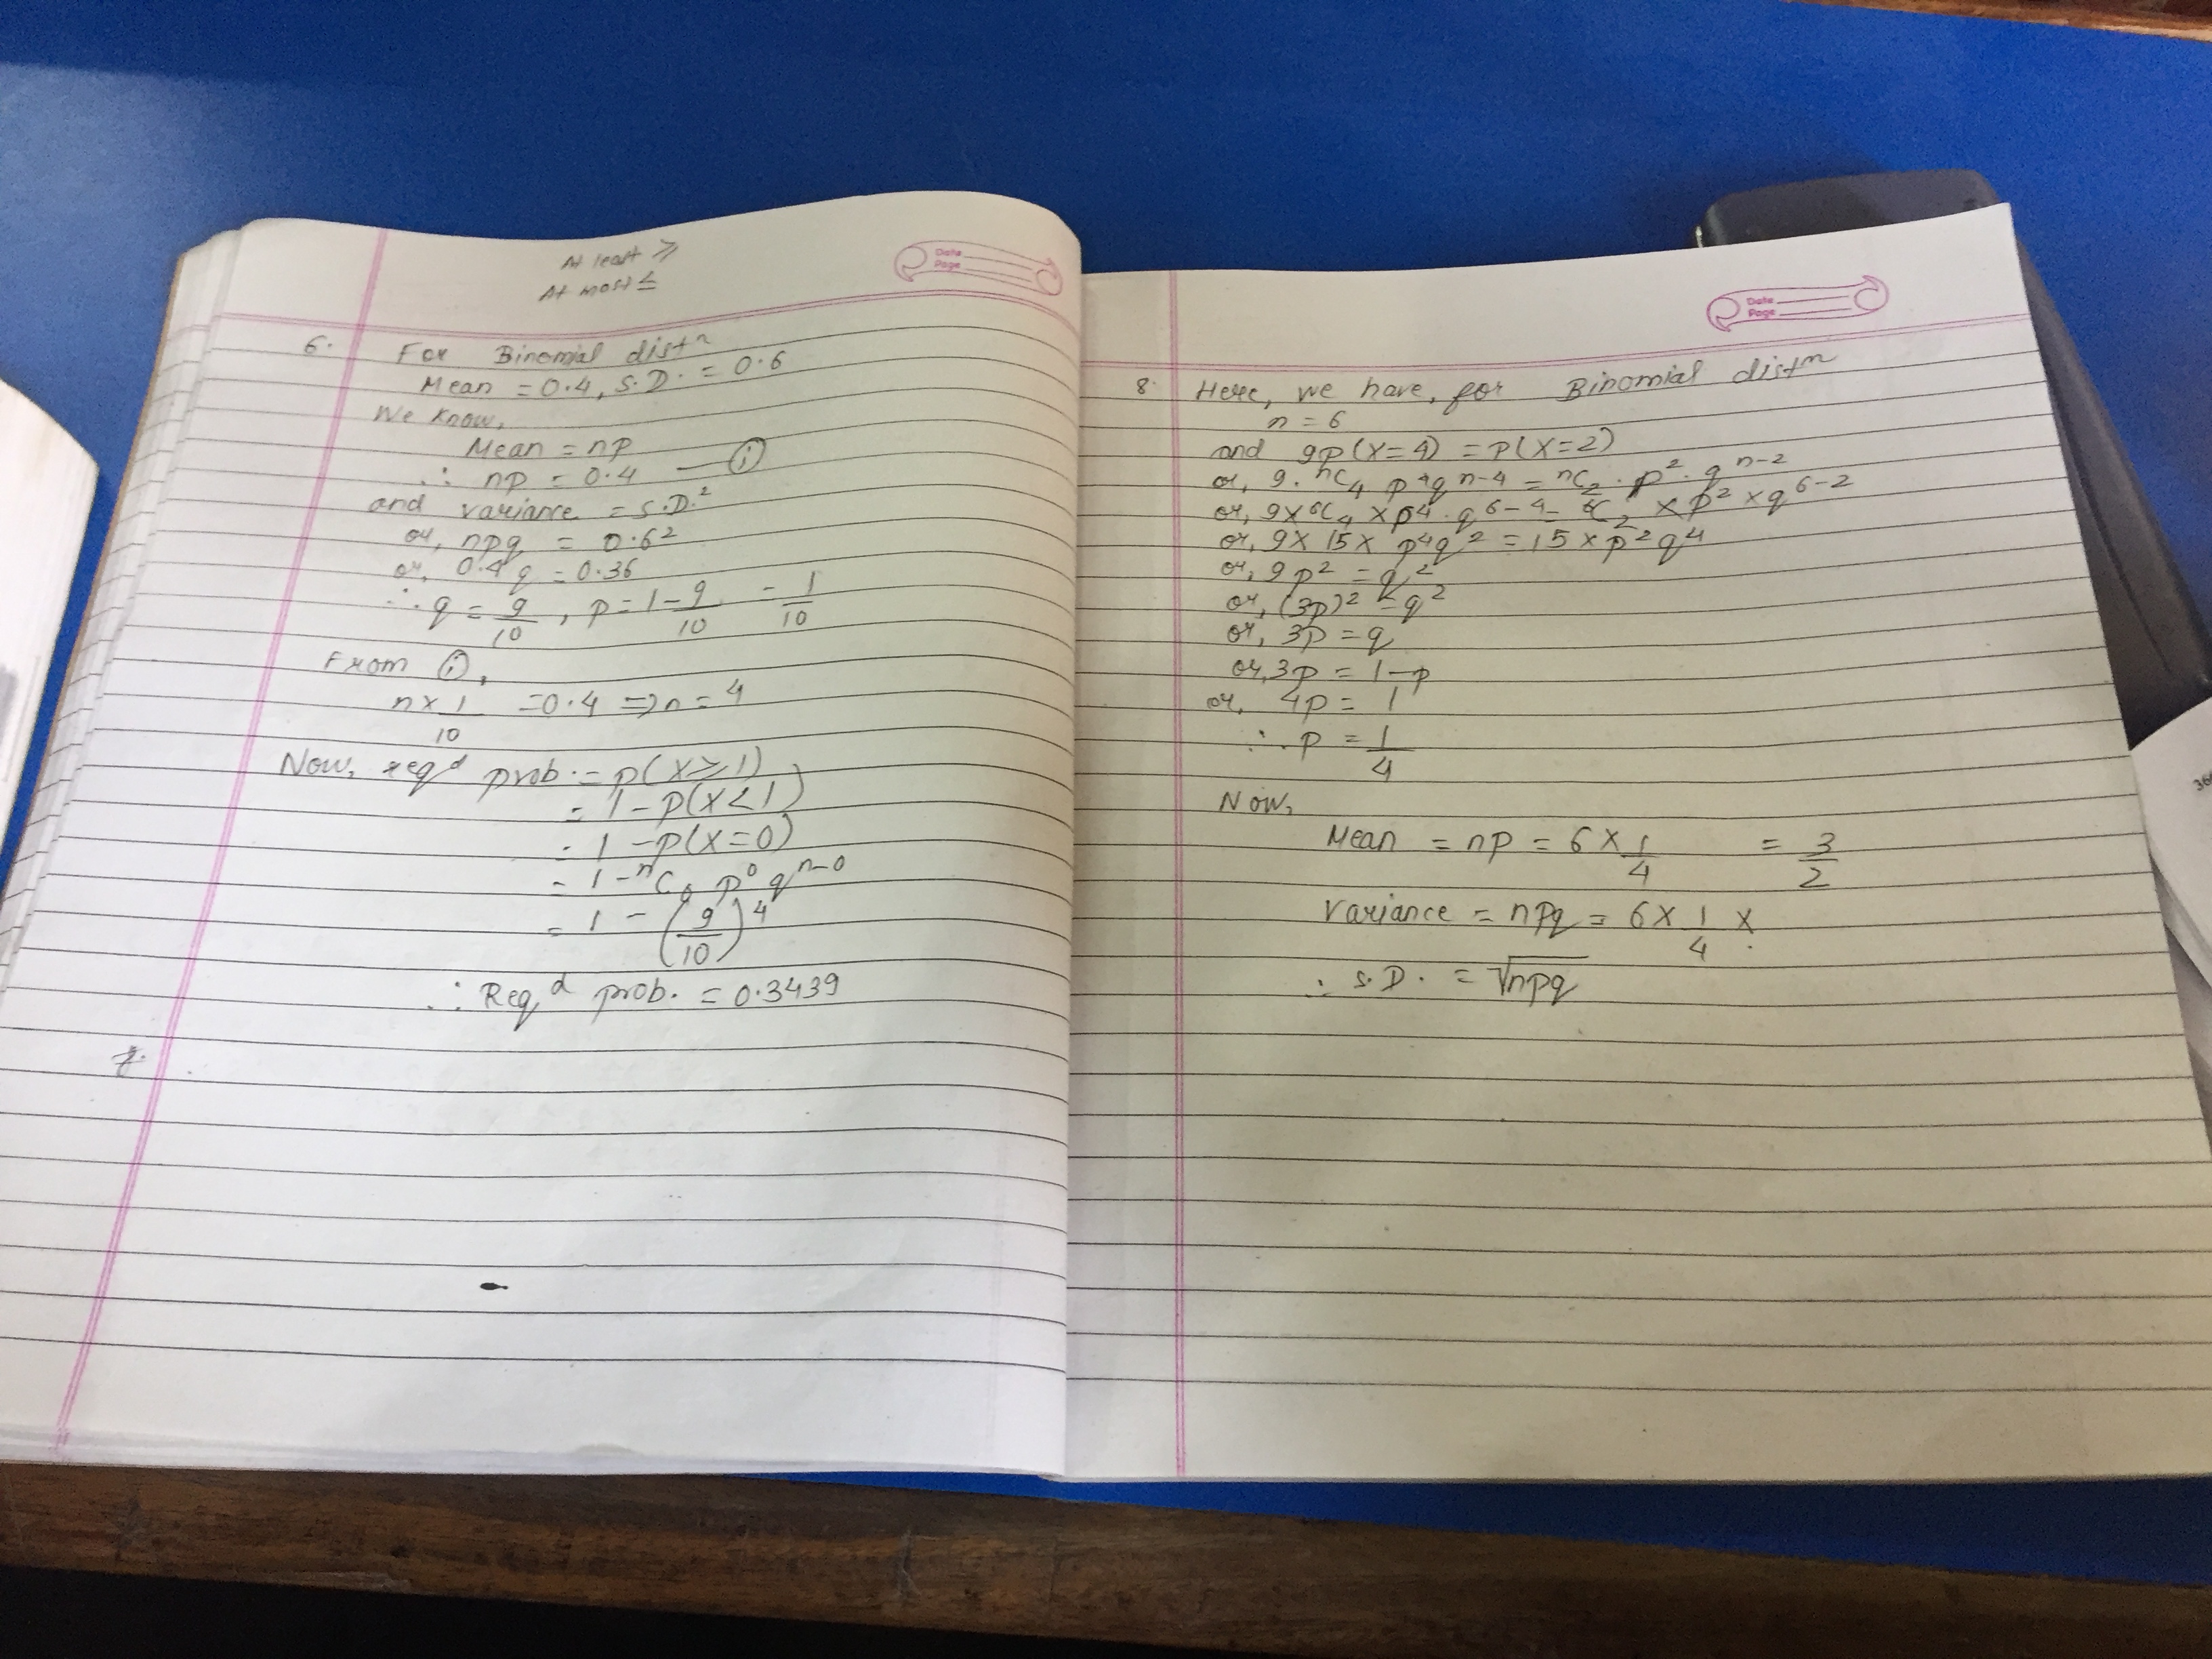 At least ≥
At most ≤
Date
Page
6. For Binomial distⁿ
Mean = 0.4, S.D. = 0.6
We know,
Mean = np
∴ np = 0.4 — (i)
and variance = S.D.²
or, npq = 0.6²
or, 0.4q = 0.36
∴ q = 9/10, p = 1 - 9/10 - 1/10
From (i),
n × 1/10 = 0.4 => n = 4
Now, reqd prob. = P(X ≥ 1)
= 1 - P(X < 1)
= 1 - P(X = 0)
= 1 - ⁿC₀ p⁰ qⁿ⁻⁰
= 1 - (9/10)⁴
∴ Reqd prob. = 0.3439
7.
Date
Page
8. Here, we have, for Binomial distn
n = 6
and 9P(X=4) = P(X=2)
or, 9. nC₄ p⁴qⁿ⁻⁴ = nC₂. p². qⁿ⁻²
or, 9×6C₄ × p⁴. q⁶⁻⁴ - 6C₂ × p² × q⁶⁻²
or, 9× 15× p⁴q² = 15 × p²q⁴
or, 9p² = q²
or, (3p)² = q²
or, 3p = q
or, 3p = 1-p
or, 4p = 1
∴ p = 1/4
Now,
Mean = np = 6 × 1/4 = 3/2
Variance = npq = 6 × 1/4 ×
∴ S.D. = √npq